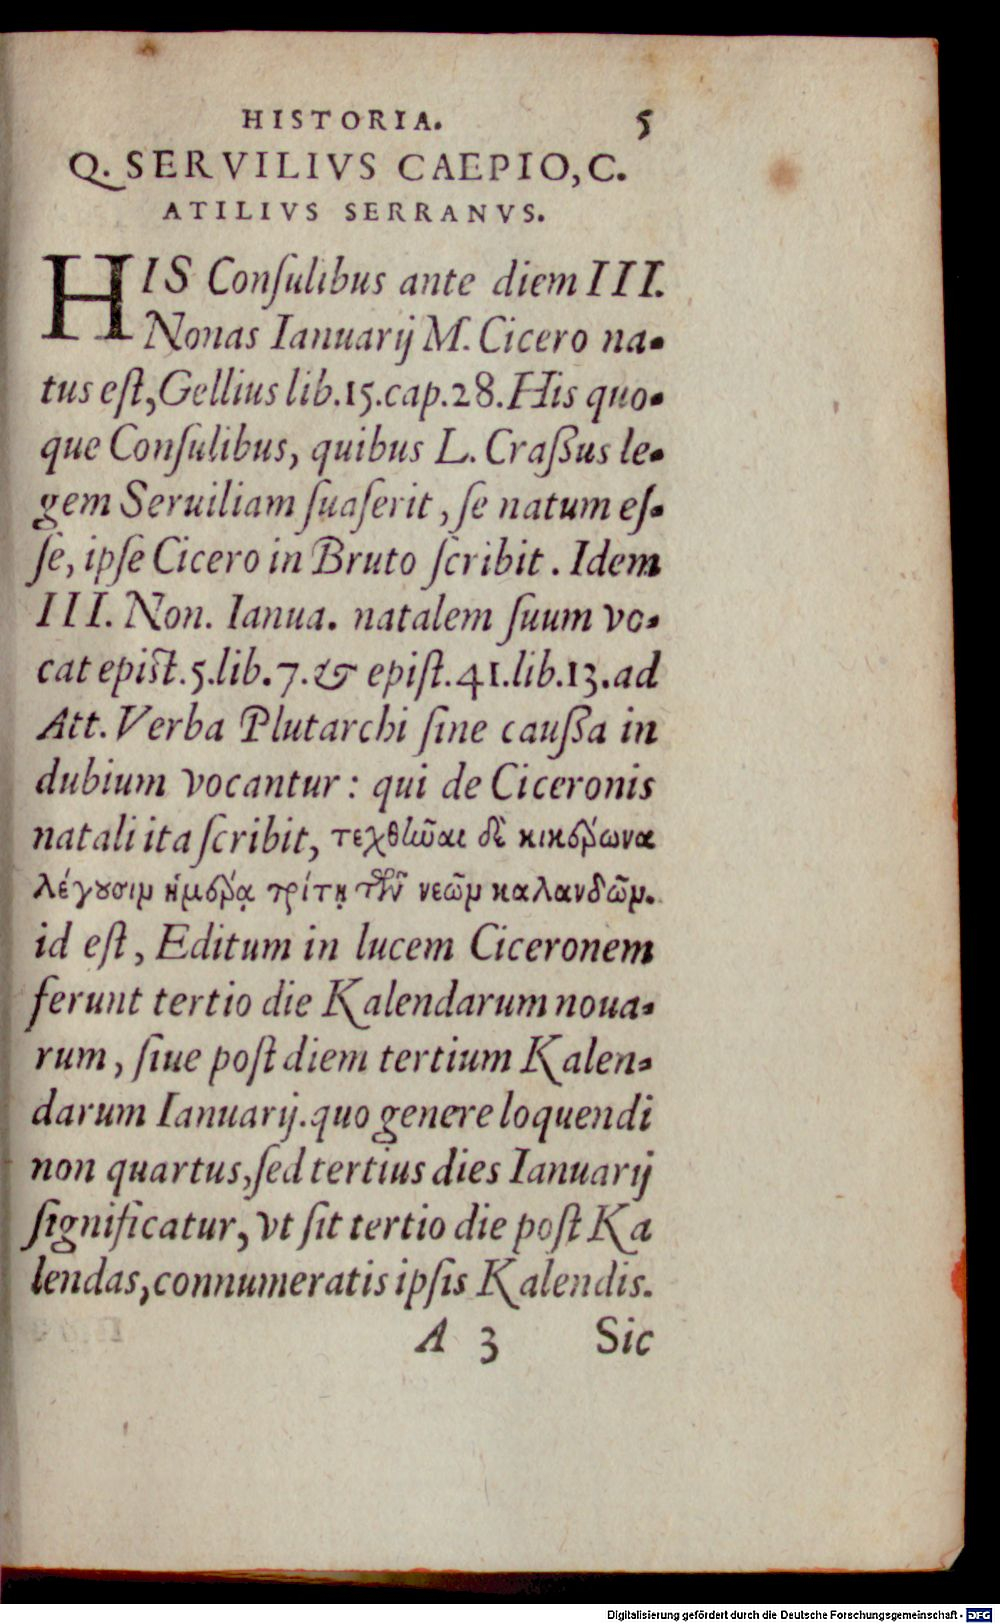 HISTORIA. 5
Q. SERVILIVS CAEPIO, C.
ATILIVS SERRANVS.
HIS Conſulibus ante diem III.
Nonas Ianuarij M. Cicero na-
tus eſt, Gellius lib.15.cap.28. His quo-
que Conſulibus, quibus L. Craſſus le-
gem Seruiliam ſuaſerit, ſe natum eſ-
ſe, ipſe Cicero in Bruto ſcribit. Idem
III. Non. Ianua. natalem ſuum vo-
cat epiſt.5.lib.7.& epiſt.41.lib.13.ad
Att. Verba Plutarchi ſine cauſſa in
dubium vocantur: qui de Ciceronis
natali ita ſcribit, τεχθῆναι δὲ κικέρωνα
λέγουσιν ἡμέρᾳ τρίτῃ τῶν νεῶν καλανδῶν.
id eſt, Editum in lucem Ciceronem
ferunt tertio die Kalendarum noua-
rum, ſiue poſt diem tertium Kalen-
darum Ianuarij. quo genere loquendi
non quartus, ſed tertius dies Ianuarij
ſignificatur, vt ſit tertio die poſt Ka
lendas, connumeratis ipſis Kalendis.
A 3 Sic
Digitalisierung gefördert durch die Deutsche Forschungsgemeinschaft - DFG